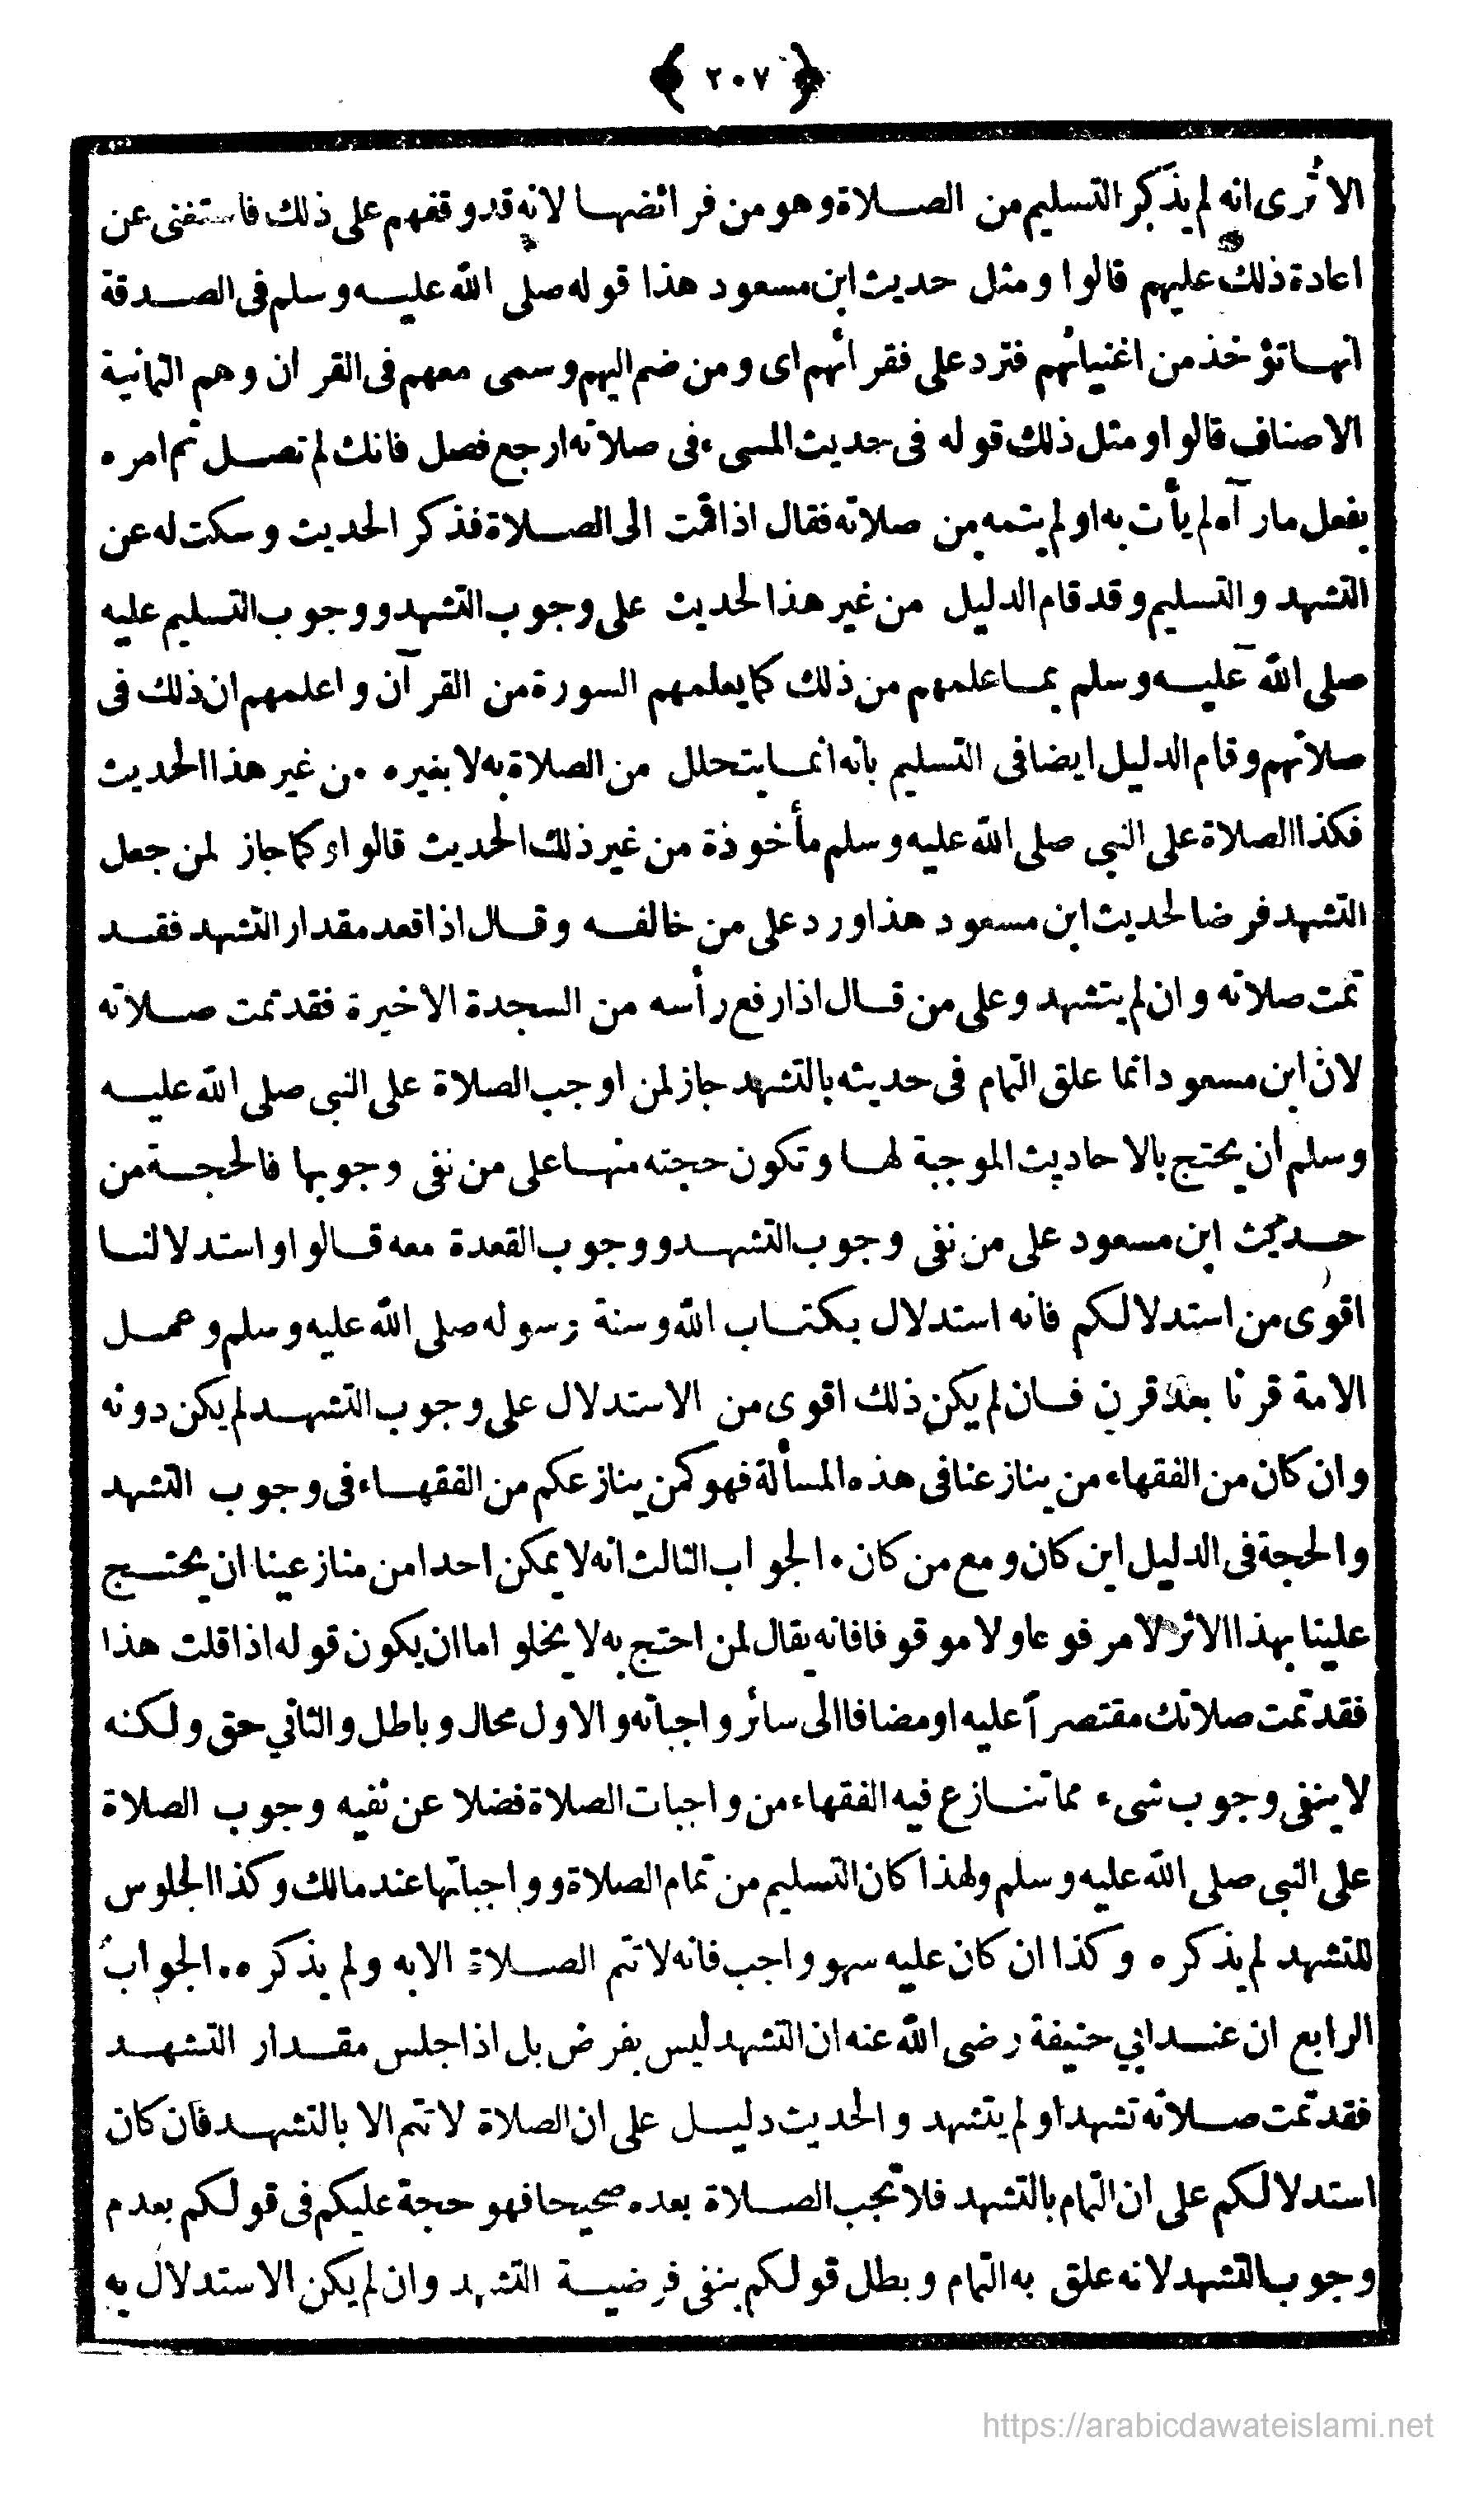 ﴿ ٢٠٧ ﴾
الا ترى انه لم يذكر التسليم من الصلاة وهو من فرائضها لانه قد وقفهم على ذلك فاستغنى عن
اعادة ذلك عليهم قالوا ومثل حديث ابن مسعود هذا قوله صلى الله عليه وسلم فى الصدقة
انها تؤخذ من اغنيائهم فترد على فقرائهم اى ومن ضم اليهم وسمى معهم فى القران وهم الثمانية
الاصناف قالوا ومثل ذلك قوله فى حديث المسىء فى صلاته ارجع فصل فانك لم تصل ثم امره
بفعل ما رآه لم يأت به او لم يتمه من صلاته فقال اذا قمت الى الصلاة فذكر الحديث وسكت له عن
التشهد والتسليم وقد قام الدليل من غير هذا لحديث على وجوب التشهد ووجوب التسليم عليه
صلى الله عليه وسلم بما علمهم من ذلك كما يعلمهم السورة من القرآن واعلمهم ان ذلك فى
صلاتهم وقام الدليل ايضا فى التسليم بانه انما يتحلل من الصلاة به لا بغيره من غير هذا الحديث
فكذا الصلاة على النبى صلى الله عليه وسلم مأخوذة من غير ذلك الحديث قالوا وكما جاز لمن جعل
التشهد فرضا لحديث ابن مسعود هذا ورد على من خالفه وقال اذا قعد مقدار التشهد فقد
تمت صلاته وان لم يتشهد وعلى من قال اذا رفع رأسه من السجدة الاخيرة فقد تمت صلاته
لان ابن مسعود انما علق التمام فى حديثه بالتشهد جاز لمن اوجب الصلاة على النبى صلى الله عليه
وسلم ان يحتج بالاحاديث الموجبة لها وتكون حجته منها على من نفى وجوبها فالحجة من
حديث ابن مسعود على من نفى وجوب التشهد ووجوب القعدة معه قالوا واستدلالنا
اقوى من استدلالكم فانه استدلال بكتاب الله وسنة رسوله صلى الله عليه وسلم وعمل
الامة قرنا بعد قرن فان لم يكن ذلك اقوى من الاستدلال على وجوب التشهد لم يكن دونه
وان كان من الفقهاء من ينازعنا فى هذه المسألة فهو كمن ينازعكم من الفقهاء فى وجوب التشهد
والحجة فى الدليل اين كان ومع من كان ٠ الجواب الثالث انه لا يمكن احدا من منازعينا ان يحتج
علينا بهذا الاثر لا مرفوعا ولا موقوفا فانه يقال لمن احتج به لا يخلو اما ان يكون قوله اذا قلت هذا
فقد تمت صلاتك مقتصرآ عليه او مضافا الى سائر واجباته والاول محال وباطل والثاني حق ولكنه
لا ينفى وجوب شىء مما تنازع فيه الفقهاء من واجبات الصلاة فضلا عن نفيه وجوب الصلاة
على النبى صلى الله عليه وسلم ولهذا كان التسليم من تمام الصلاة وواجباتها عند مالك وكذا الجلوس
للتشهد لم يذكره وكذا ان كان عليه سهو واجب فانه لا تتم الصلاة الا به ولم يذكره ٠ الجواب
الرابع ان عند ابي حنيفة رضى الله عنه ان التشهد ليس بفرض بل اذا جلس مقدار التشهد
فقد تمت صلاته تشهد او لم يتشهد والحديث دليل على ان الصلاة لا تتم الا بالتشهد فان كان
استدلالكم على ان التمام بالتشهد فلا تجب الصلاة بعده صحيحا فهو حجة عليكم فى قولكم بعدم
وجوب التشهد لانه علق به التمام وبطل قولكم بنفى فرضية التشهد وان لم يكن الاستدلال به
https://arabicdawateislami.net